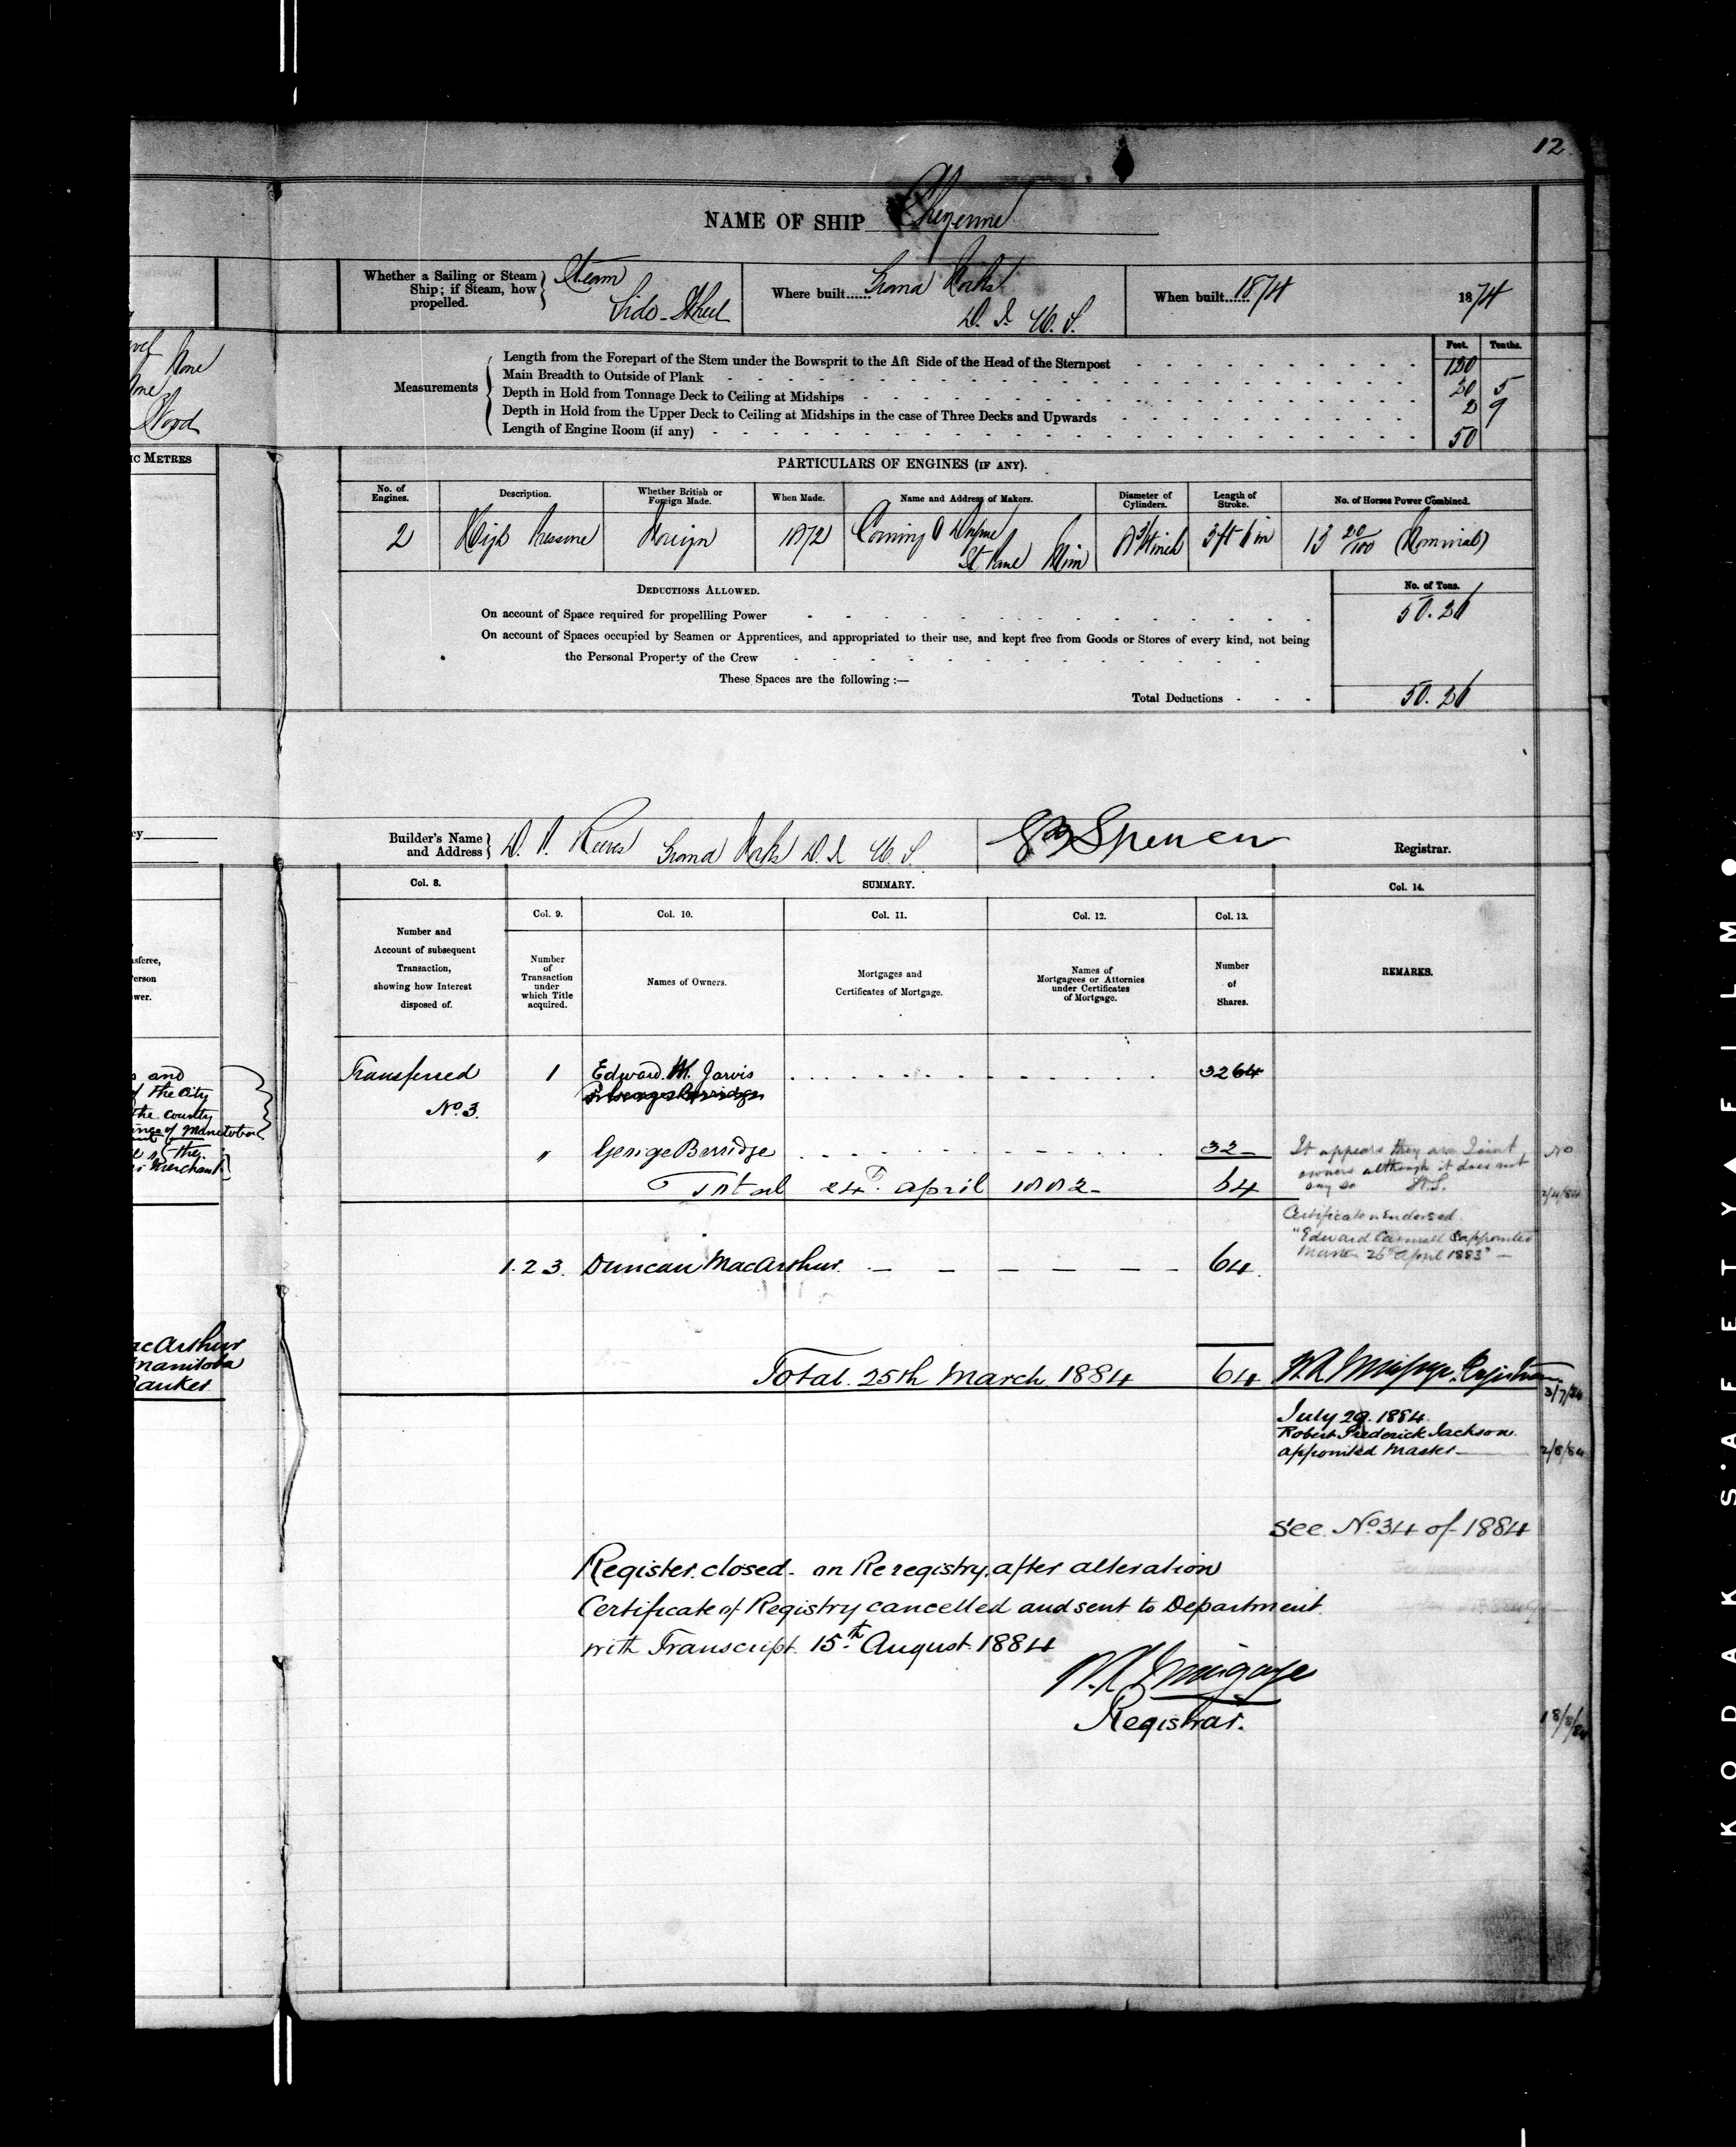 12
NAME OF SHIP Cheyenne
Whether a Sailing or Steam Ship; if Steam, how propelled. Steam Side-Wheel
Where built...... Grand Forks D. T. U. S.
When built...... 1874
1874
Measurements
Feet. Tenths.
Length from the Forepart of the Stem under the Bowsprit to the Aft Side of the Head of the Sternpost 120
Main Breadth to Outside of Plank 20 5
Depth in Hold from Tonnage Deck to Ceiling at Midships 2 9
Depth in Hold from the Upper Deck to Ceiling at Midships in the case of Three Decks and Upwards
Length of Engine Room (if any) 50
None
Wood
IC METRES
PARTICULARS OF ENGINES (IF ANY).
No. of Engines. Description. Whether British or Foreign Made. When Made. Name and Address of Makers. Diameter of Cylinders. Length of Stroke. No. of Horses Power Combined.
2 High Pressure Foreign 1872 St Paul Minn 3 ft 6 in 13 20/100 (Nominal)
DEDUCTIONS ALLOWED.
No. of Tons.
On account of Space required for propellling Power 50.26
On account of Spaces occupied by Seamen or Apprentices, and appropriated to their use, and kept free from Goods or Stores of every kind, not being
the Personal Property of the Crew
These Spaces are the following :—
Total Deductions 50.26
Builder's Name and Address D. P. Reeves Grand Forks D. T. U. S.
Spencer
Registrar.
Col. 8.
SUMMARY.
Col. 14.
Col. 9. Col. 10. Col. 11. Col. 12. Col. 13.
Number and Account of subsequent Transaction, showing how Interest disposed of.
Number of Transaction under which Title acquired.
Names of Owners.
Mortgages and Certificates of Mortgage.
Names of Mortgagees or Attornies under Certificates of Mortgage.
Number of Shares.
REMARKS.
Transferred 1 Edward W. Jarvis 32 64
No. 3.
" George Berridge 32
Total 24th April 1882 64
It appears they are Joint
owners although it does not
say so
Certificate endorsed
"Edward
appointed
Master 26th April 1883" —
1. 2 3. Duncan MacArthur 64
Total 25th March 1884 64
Registrar
3/7/84
July 29. 1884.
Robert Frederick Jackson
appointed Master
2/8/84
See No. 34 of 1884
Register closed - on Reregistry, after alteration
Certificate of Registry cancelled and sent to Department
with Transcript. 15th August 1884
Registrar.
18/8/84
and
of the City
the County
of Manitoba
Merchant
acArthur
Manitoba
Banker
KODAK SAFETY FILM